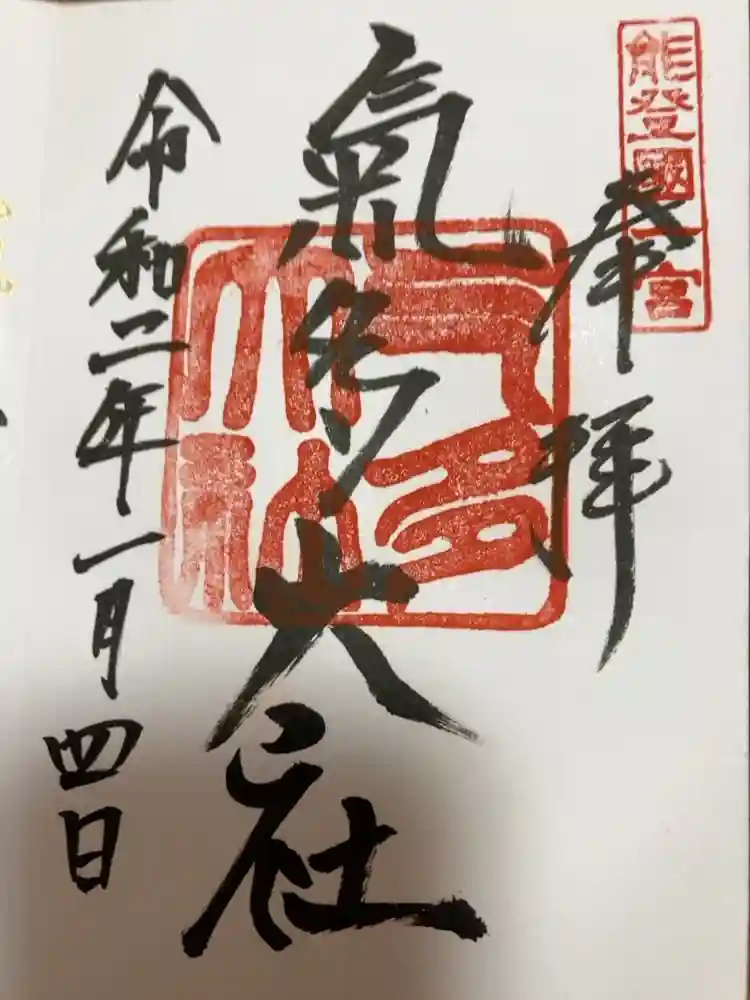 能登國一宮
奉拝
氣多大社
气多大社
令和二年一月四日